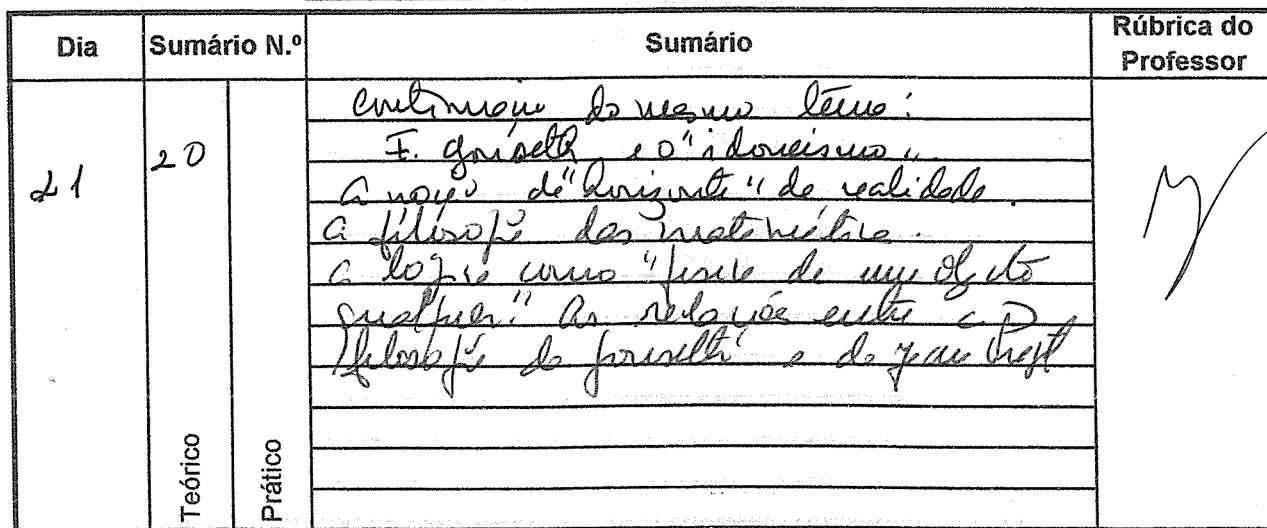 Dia Sumário N.º Sumário Rúbrica do Professor
21 20
continuação do mesmo tema:
F. Gonseth e o "idoneismo"
a noção de "horizonte" de realidade.
a filosofia das matemática.
a lógica como "física de um objecto
qualquer". As relações entre a
filosofia de Gonseth e de Jean Piaget
Teórico
Prático